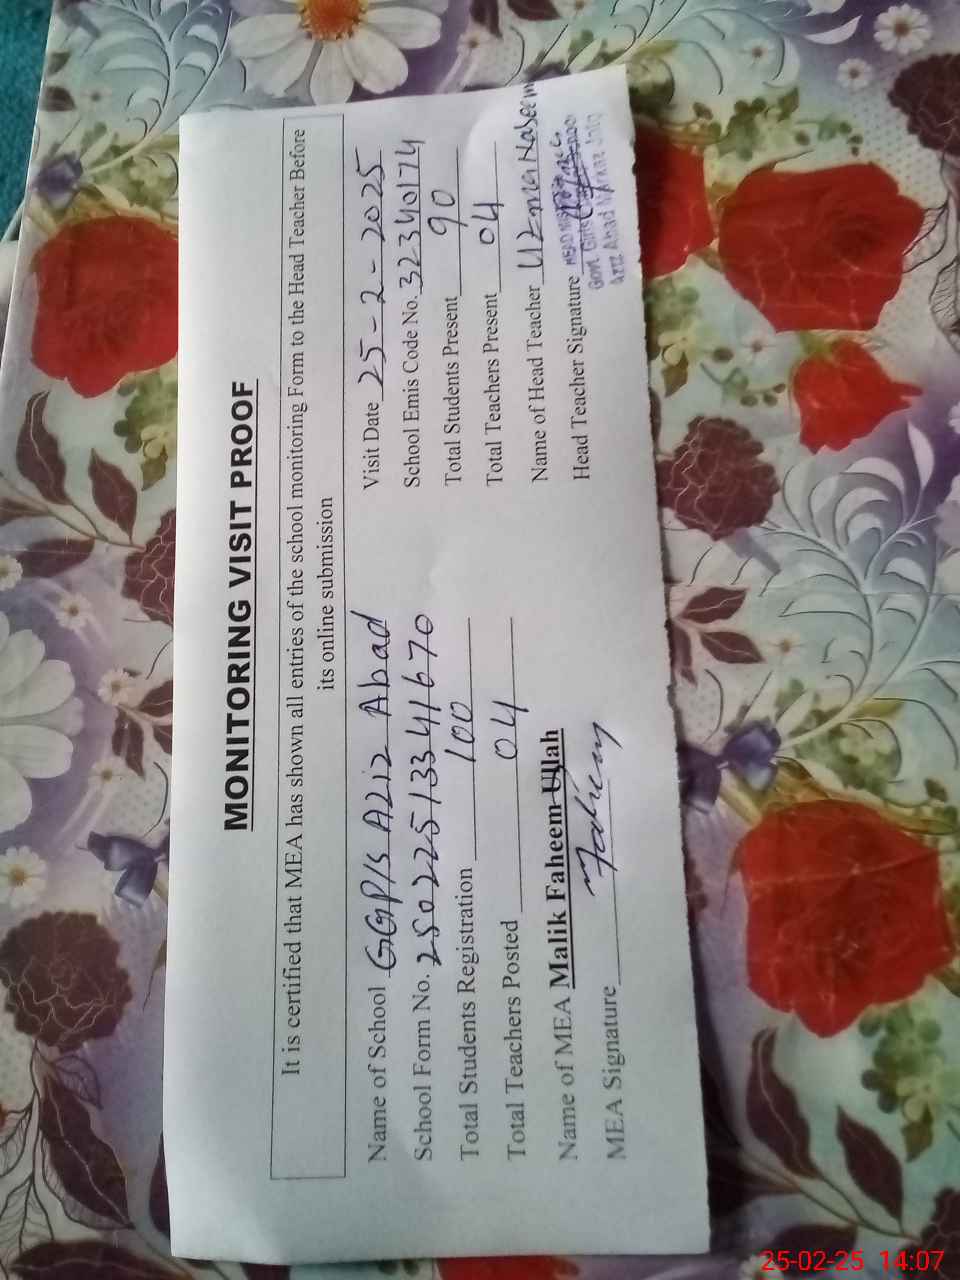 MONITORING VISIT PROOF
It is certified that MEA has shown all entries of the school monitoring Form to the Head Teacher Before
its online submission
Name of School GGP/S Aziz Abad
Visit Date 25-2-2025
School Form No. 25022513341670
School Emis Code No. 32340174
Total Students Registration 100
Total Students Present 90
Total Teachers Posted 04
Total Teachers Present 04
Name of MEA Malik Faheem Ullah
Name of Head Teacher Uzma Naseem
MEA Signature Faheem
Head Teacher Signature
Govt. Girls
Aziz Abad Markaz
25-02-25 14:07